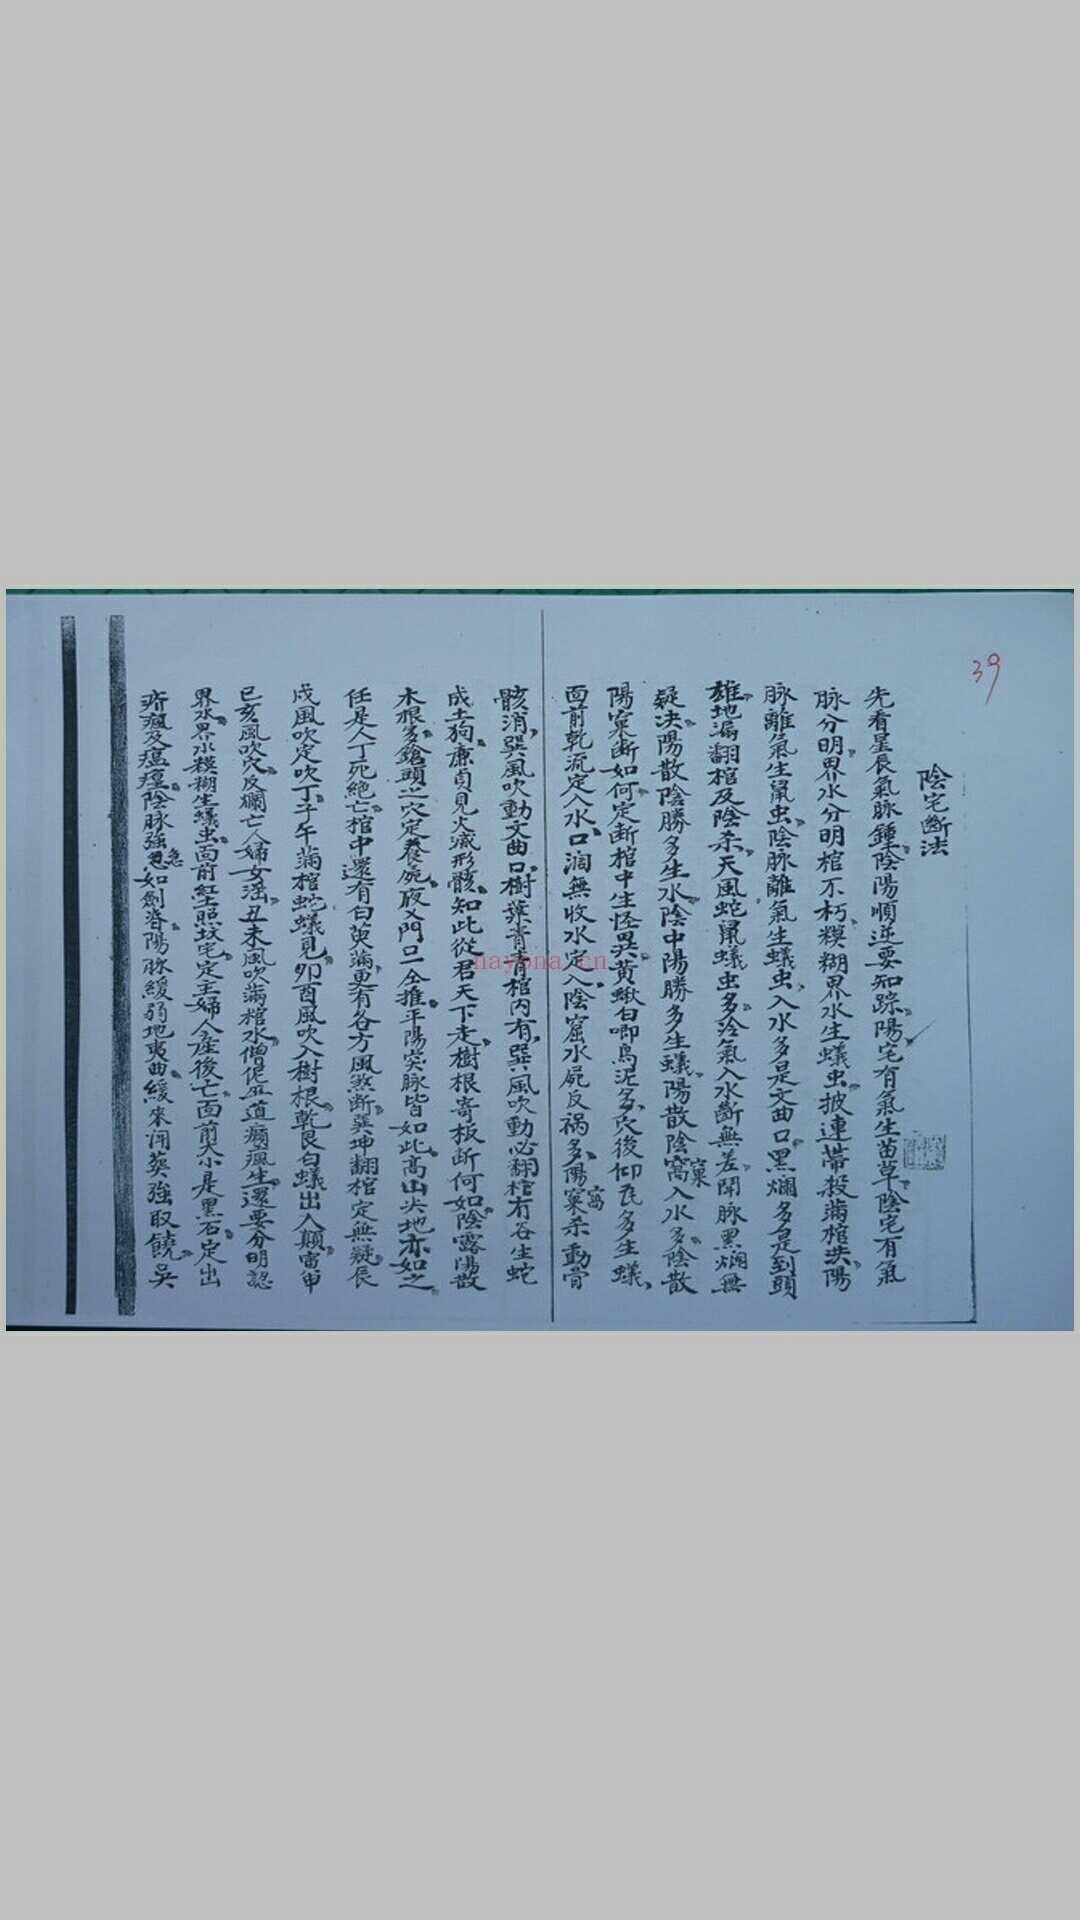 39
陰宅斷法
先看星辰氣脉鍾陰陽順逆要知踪陽宅有氣生苗草陰宅有氣
脉分明界水分明棺不朽糢糊界水生蟻虫披連帶殺滿棺洪陽
脉離氣生鼠虫陰脉離氣生蟻虫入水多是文曲口黑爛多是到頭
雄地漏翻棺及陰杀天風蛇鼠蟻虫多冷氣入水斷無差閗脉黑爛無
疑决陽散陰勝多生水陰中陽勝多生蟻陽散陰窩窠入水多陰散
陽窠斷如何定断棺中生怪異黄鰍白唧鳥泥多穴後仰瓦多生蟻
面前乾流定入水口濶無收水定入陰窟水屍反祸多陽窠窩杀動骨
骸消巽風吹動文曲口樹葉青青棺内有巽風吹動必翻棺有谷生蛇
成土狗廉貞見火滅形骸知此從君天下走樹根寄板断何如陰露陽散
木根多鎗頭之穴定養屍夜乂門口一仝推平陽突脉皆如此高山尖地亦如之
任是人丁死絶亡棺中還有白萸滿更有各方風煞断巽坤翻棺定無疑辰
戌風吹定吹丁子午滿棺蛇蟻見卯酉風吹入樹根乾艮白蟻出入顛寅申
巳亥風吹穴反爛亡人婦女滛丑未風吹滿棺水僧佬巫道癲瘋生還要分明認
界水界水糢糊生蟻虫面前紅照坟宅定主婦人産後亡面前大小是黑石定出
瘟𤶊陰脉強急如劍脊陽脉緩弱地夷曲緩來閗葵強取饒吳
nayona.cn